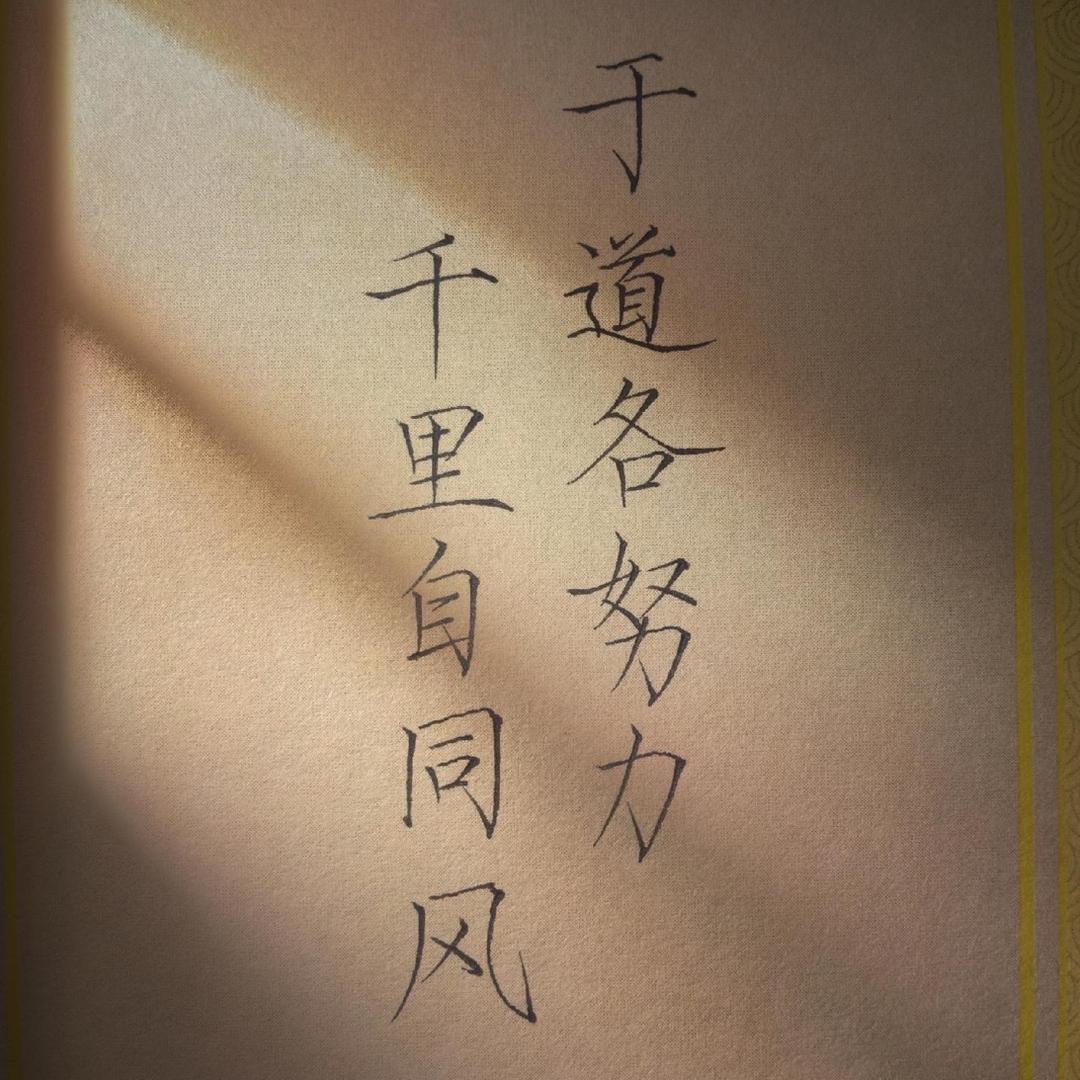 于道各努力
千里自同风